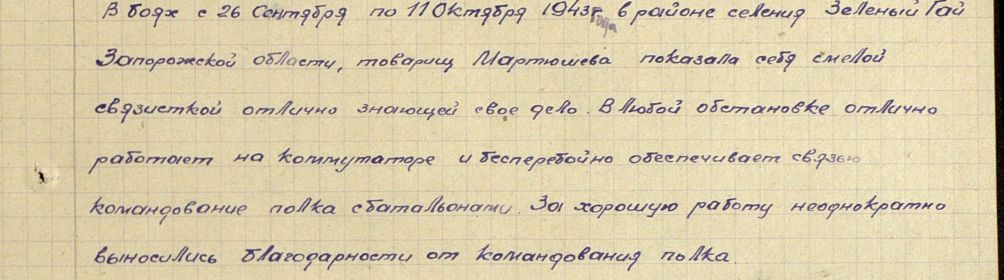 В боях с 26 Сентября по 11 Октября 1943г. года в районе селения Зеленый Гай
Запорожской области, товарищ Мартюшева показала себя смелой
связисткой отлично знающей свое дело. В любой обстановке отлично
работает на коммутаторе и бесперебойно обеспечивает связью
командование полка с батальонами. За хорошую работу неоднократно
выносились благодарности от командования полка.